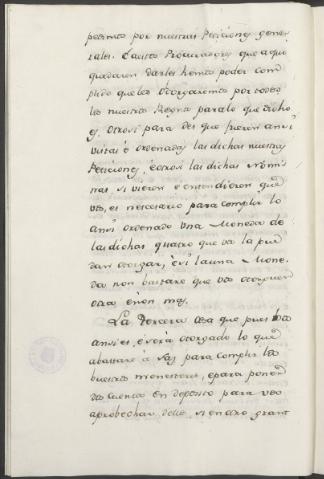 pedimos por nuestras Peticiones gene-
rales. E a estos Procuradores que aqui
quedaren darles hemos poder com-
plido que los otorgaremos por todos
los nuestros Regnos para lo que dicho
es, otrosi para des que fueren ansi
vistas e ordenadas las dichas nuestras
Peticiones, e otrosi las dichas Nomi-
nas si vieren e entendieren que
vos, es nescesario para complir lo
ansi ordenado una Moneda de
las dichas quatro que vos la pue-
dan otorgar, e si la una Mone-
da non bastare que vos otorguen
otra e non mas.
La Tercera cosa que pues vos
ansi es, e será otorgado lo que
abastare á vos para complir los
vuestros menesteres, e para poner
des cuento en deposito para vos
aprobechar dello, si en otro grant